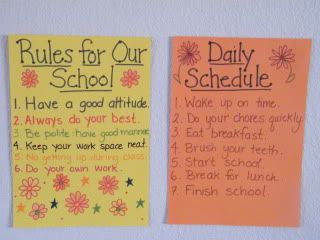 Rules for Our
School
1. Have a good attitude.
2. Always do your best.
3. Be polite: have good manners
4. Keep your work space neat.
5. No getting up during class.
6. Do your own work.
Daily
Schedule
1. Wake up on time.
2. Do your chores quickly.
3. Eat breakfast.
4. Brush your teeth.
5. Start school.
6. Break for lunch.
7. Finish school.